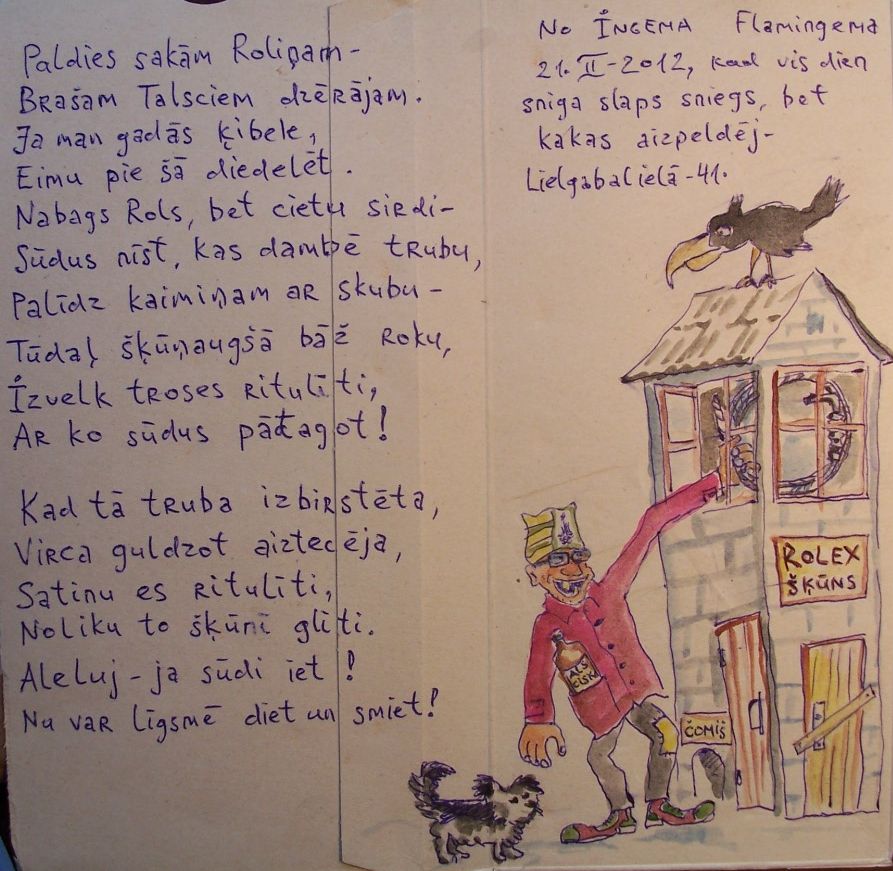 Paldies sakām Roliņam-
Brašam Talsciem dzērājam.
Ja man gadās ķibele,
Eimu pie šā diedelēt.
Nabags Rols, bet cietu sirdi-
Sūdus nīst, kas dambē trubu,
Palīdz kaimiņam ar skubu-
Tūdaļ šķūņaugšā bāž roku,
Izvelk troses ritulīti,
Ar ko sūdus pātagot!
Kad tā truba izbirstēta,
Virca guldzot aiztecēja,
Satinu es ritulīti,
Noliku to šķūnī glīti.
Aleluj-ja sūdi iet!
Nu var līgsmē diet un smiet!
No Ingema Flamingema
21. II-2012, kad vis dien
sniga slaps sniegs, bet
kakas aizpeldēj-
Lielgabalielā-41.
ROLEX
ŠĶŪNS
ČOMIŠ